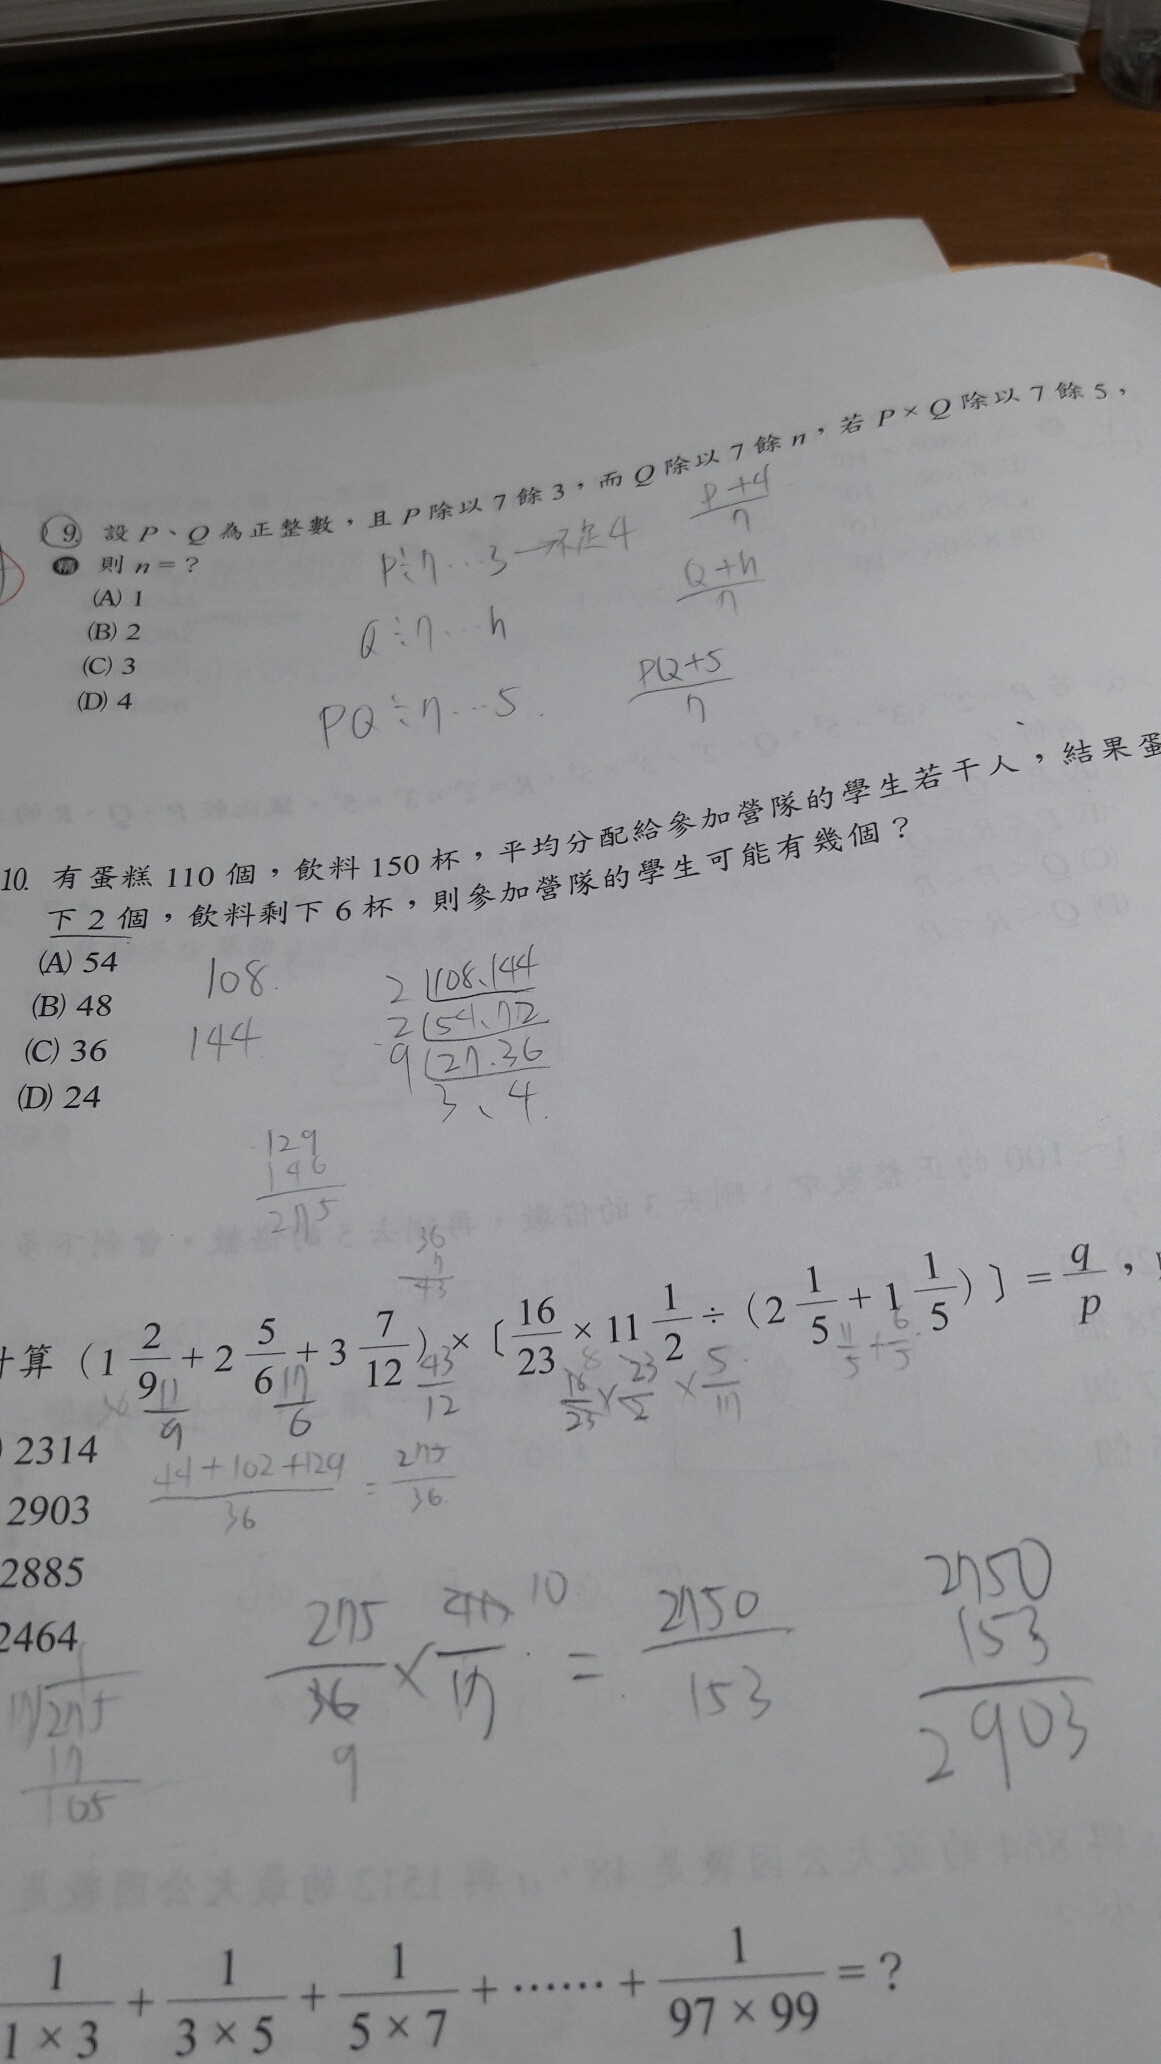 9. 設 P、Q 為正整數，且 P 除以 7 餘 3，而 Q 除以 7 餘 n，若 P × Q 除以 7 餘 5，
則 n = ?
(A) 1
(B) 2
(C) 3
(D) 4
P÷7…3→不足4
P+4/7
Q÷7…n
Q+n/7
PQ÷7…5
PQ+5/7
10. 有蛋糕 110 個，飲料 150 杯，平均分配給參加營隊的學生若干人，結果蛋
下 2 個，飲料剩下 6 杯，則參加營隊的學生可能有幾個？
(A) 54
(B) 48
(C) 36
(D) 24
108
144
2 108、144
2 54、72
9 27、36
3、4
129
146
275
36
7
43
計算 (1 2/9 + 2 5/6 + 3 7/12) × [16/23 × 11 1/2 ÷ (2 1/5 + 1 1/5)] = q/p，
36 11/9 17/6 43/12
16/23 × 23/2 × 5/17 8
11/5 + 6/5
44+102+129/36 = 275/36
2314
2903
2885
2464
275/36 × /17 10 = 2750/153
9
2750
153
2903
17 275
17
105
1/1×3 + 1/3×5 + 1/5×7 + …… + 1/97×99 = ?